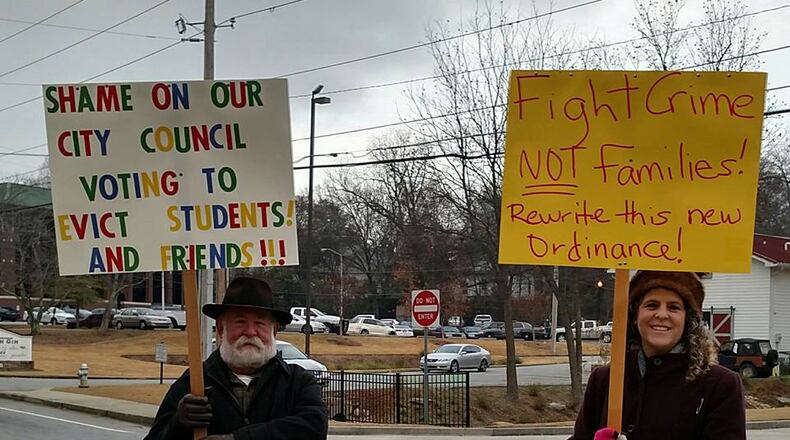 SHAME ON OUR
CITY COUNCIL
VOTING TO
EVICT STUDENTS!
AND FRIENDS!!!
Fight Crime
NOT Families!
Rewrite this new
Ordinance!
DO NOT
ENTER